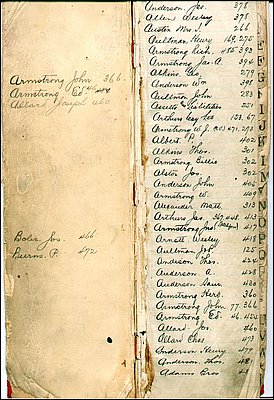 Armstrong John 366
Armstrong Ed
Allard Joseph 460
Boler Jos. 466
P. 472
Anderson, Jas. 378
Allen Wesley 378
Austin Mrs. J. 366
Aultman, Henry 169, 275
Armstrong Rich. 485 393
Armstrong Jas. A. 394
Atkins Geo. 279
Anderson Wm 398
Aultman John 283
Assets & Liabilities 251
Arthurs 123, 67
Armstrong W. J. 471, 293
Albert P. 402
Atkins Thos. 301
Armstrong Billie 302
Alster Jos 302
Anderson John 405
Armstrong W. 409
Alexander Matt 313
Arthurs Jas. 367, 448, 413
Armstrong Jno 417
Arnott Wesley 418
Aultman Jos 125
Anderson Thos. 424
Anderson A. 428
Anderson 430
Armstrong Herb. 360
Armstrong John 77. 366
Armstrong Ed. 46. 426
Allard Jos. 460
Allard Ches 473
Anderson Henry 479
Anderson, Thos. 481
Adams Bros
E
F
G
H
I
J
K
L
M
N
O
P